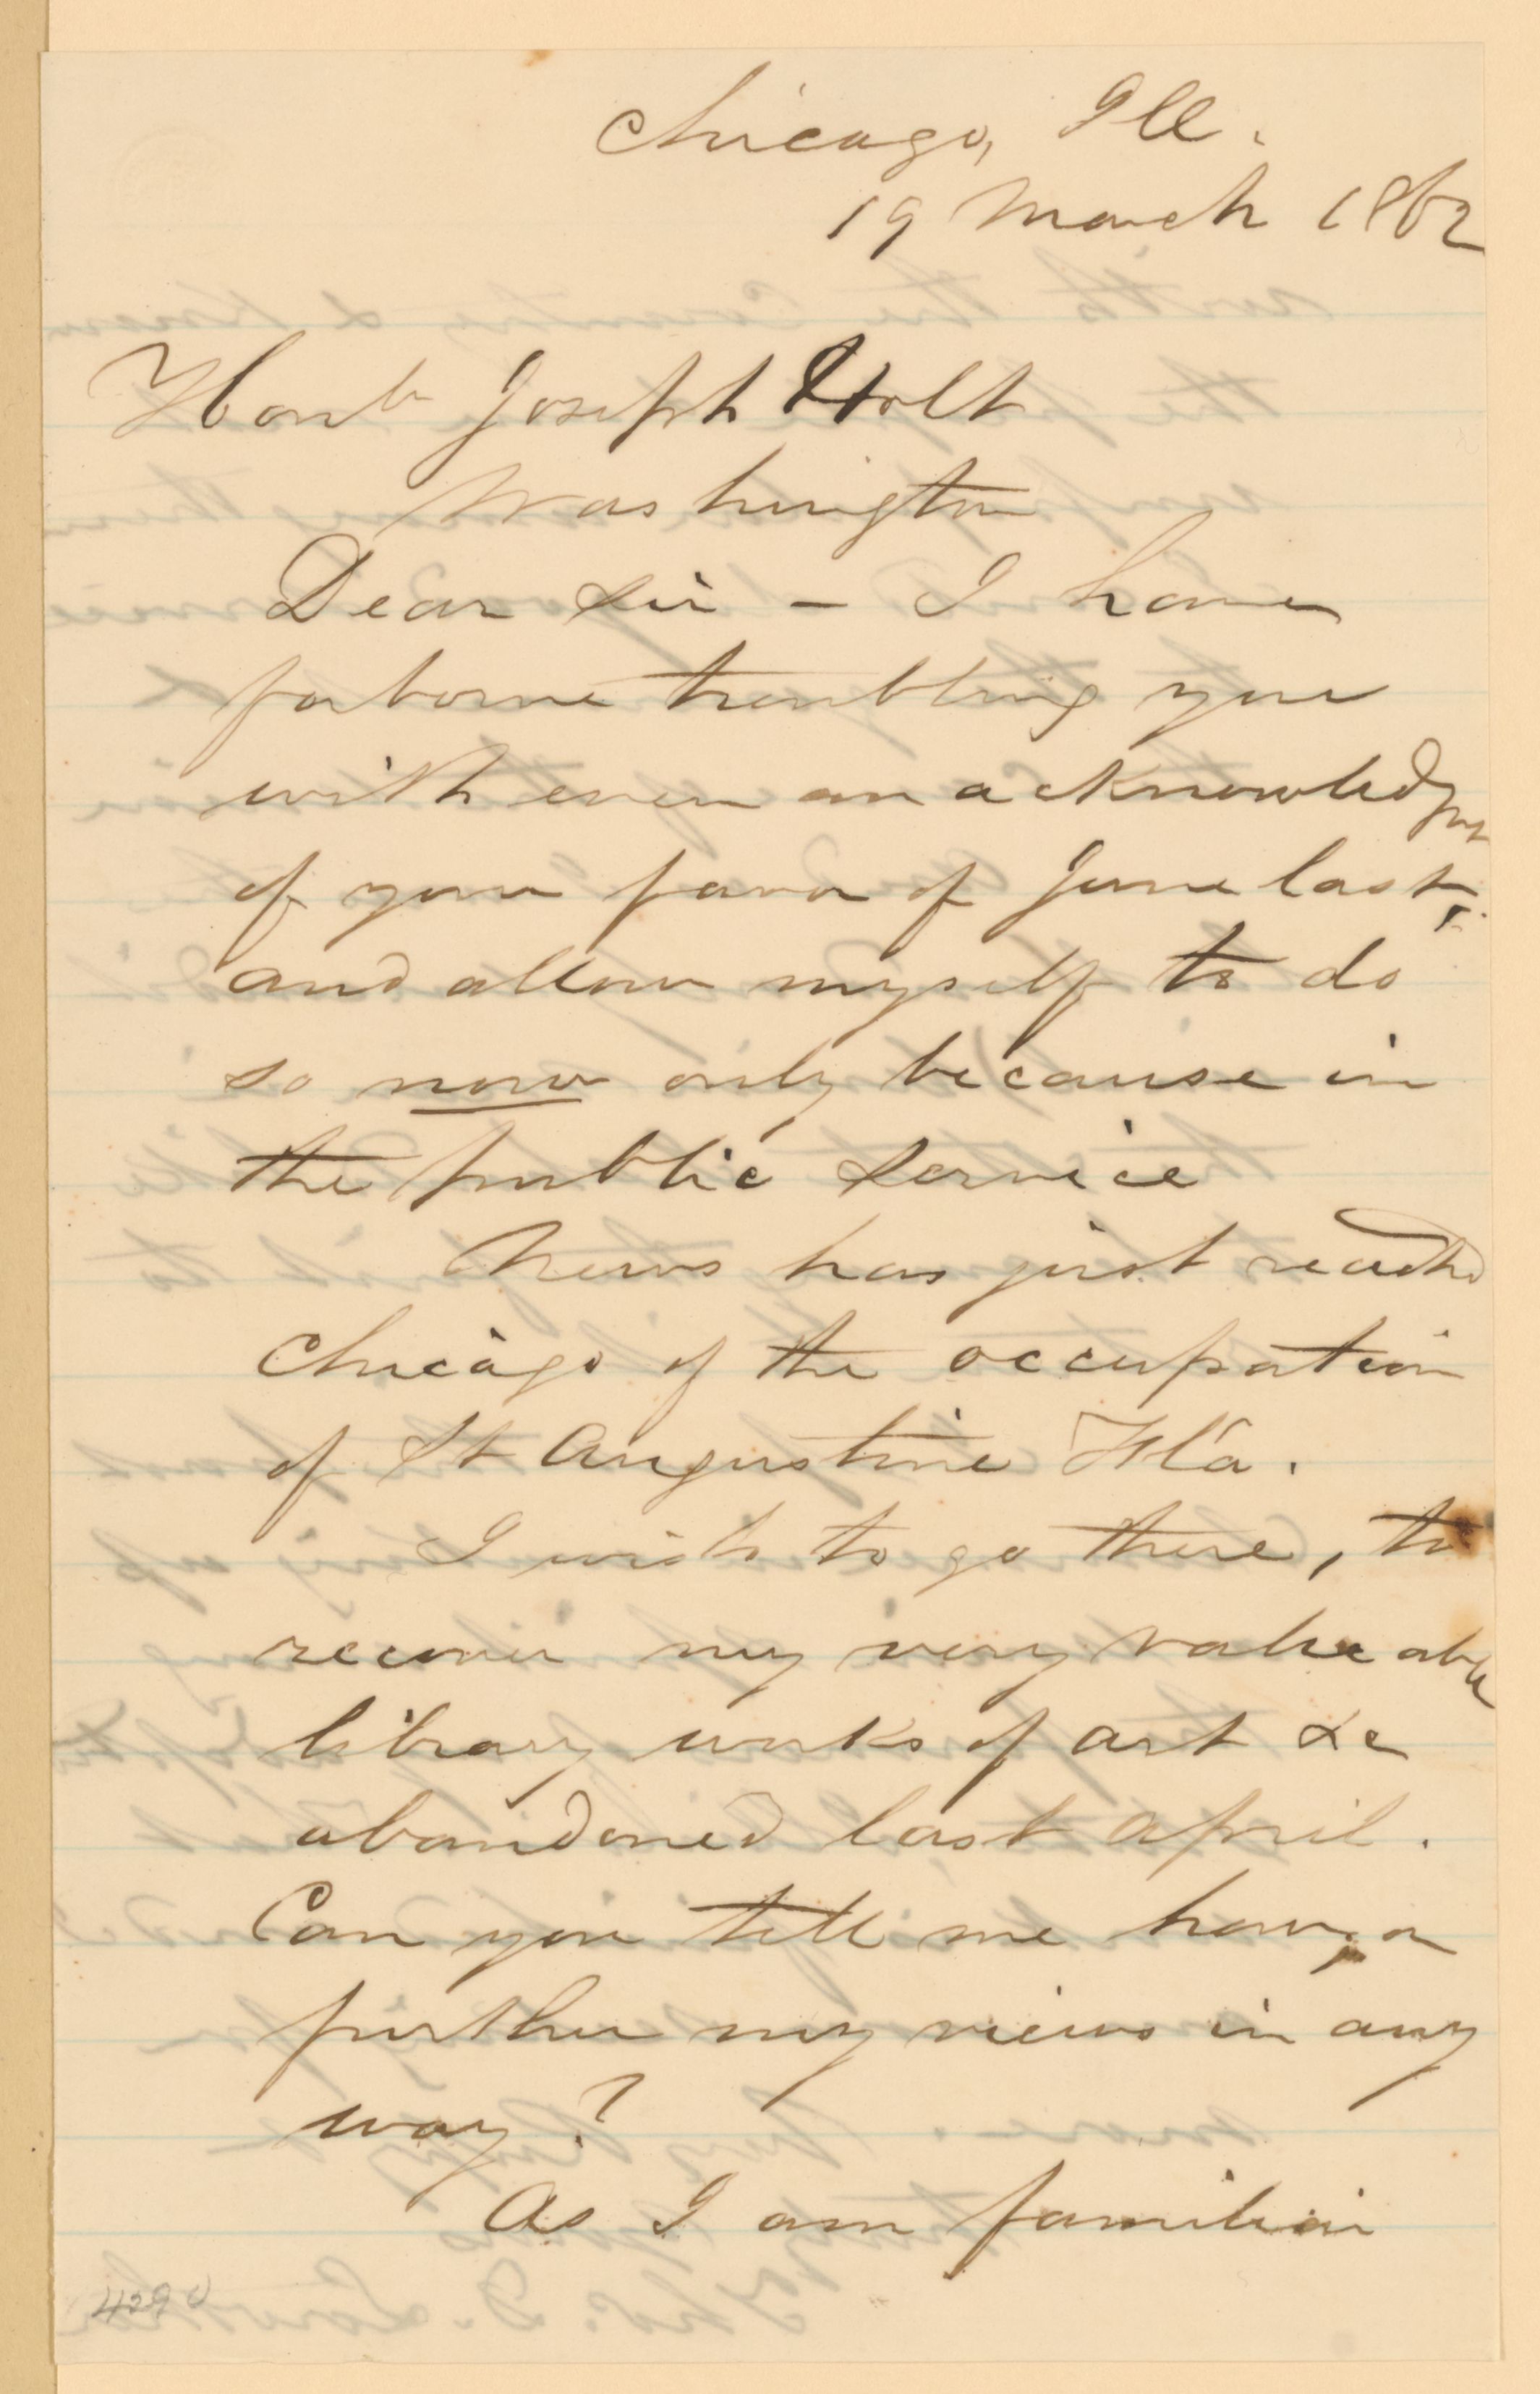 Chicago, Ill.
19 March 1862
Honble Joseph Holt
Washington
Dear Sir – I have
forborne troubling you
with even an acknowledgmt
of your favor of June last,
and allow myself to do
so now only because in
the public service
News has just reached
Chicago of the occupation
of St Augustine Fl'a.
I wish to go there, to
recover my very valueable
library works of art &c
abandoned last April.
Can you tell me how, or
further my views in any
way?
As I am familiar
4290